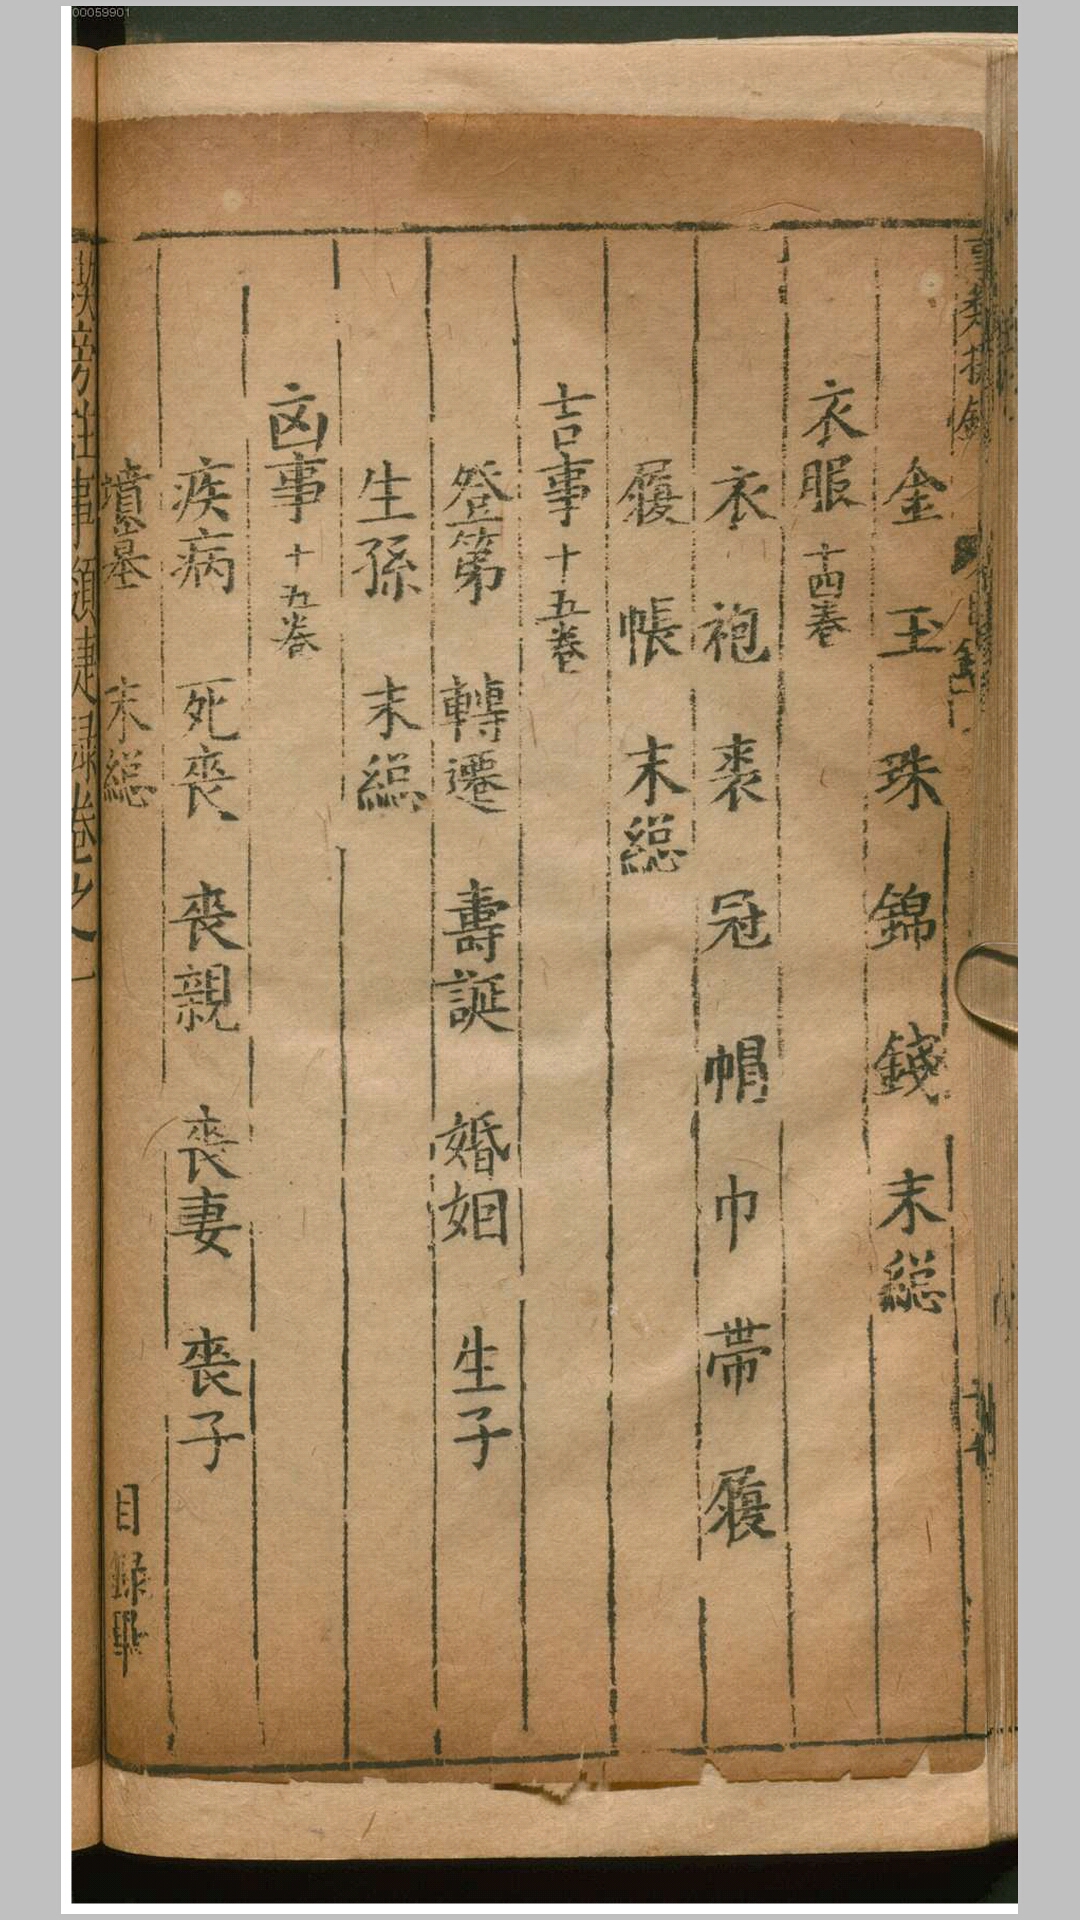 00059901
金 玉 珠 錦 錢 末 総
衣服 十四卷
衣 袍 裘 冠 帽 巾 帶 履
履 帳 末総
吉事 十五卷
登第 轉遷 壽誕 婚姻 生子
生孫 末総
凶事 十五卷
疾病 死喪 喪親 喪妻 喪子
墳墓 末総 目録畢